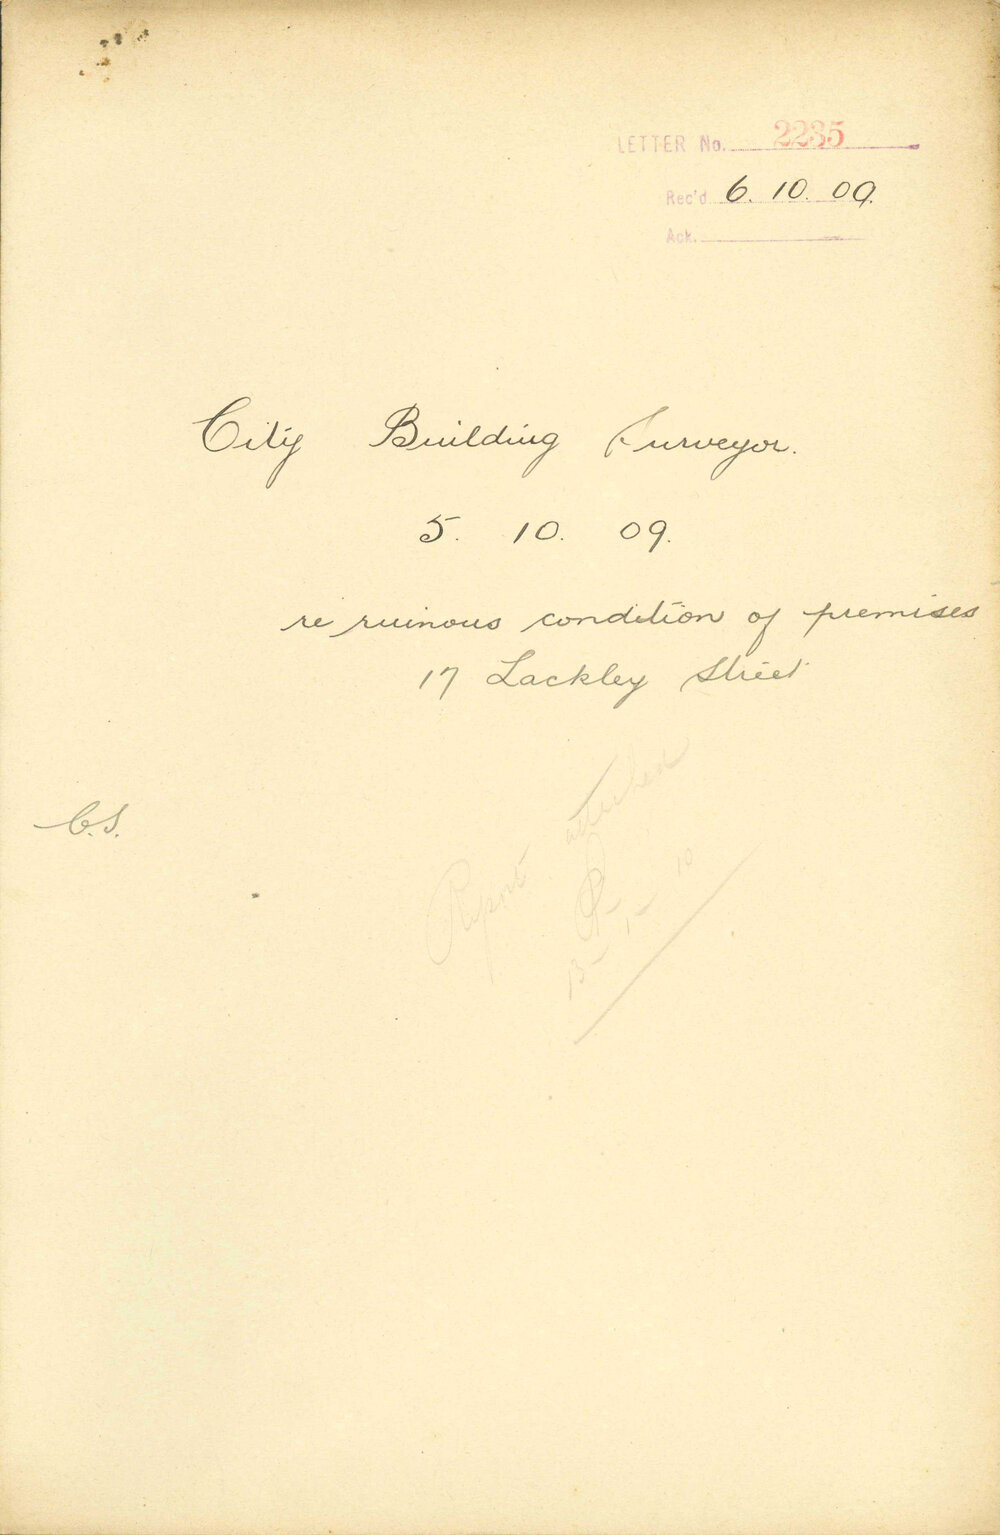 LETTER No. 2235
Rec'd 6. 10. 09.
Ack.
City Building Surveyor.
5. 10. 09.
re ruinous condition of premises
17 Lackley Street
C.S.
Report attached
13-1-10